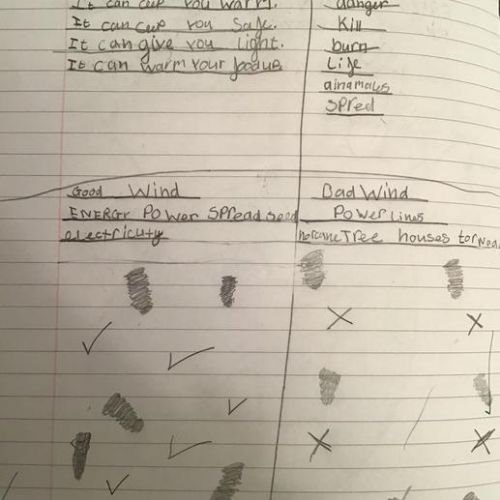 It can ceep you warm.
It can ceep you Safe.
It can give you light.
It can warm your
danger
Kill
burn
Life
ainamals
Spred
Good Wind
ENERGY POWER SPREAD Seed
electricuty
Bad Wind
Power Lines
horcane Tree houses tornea